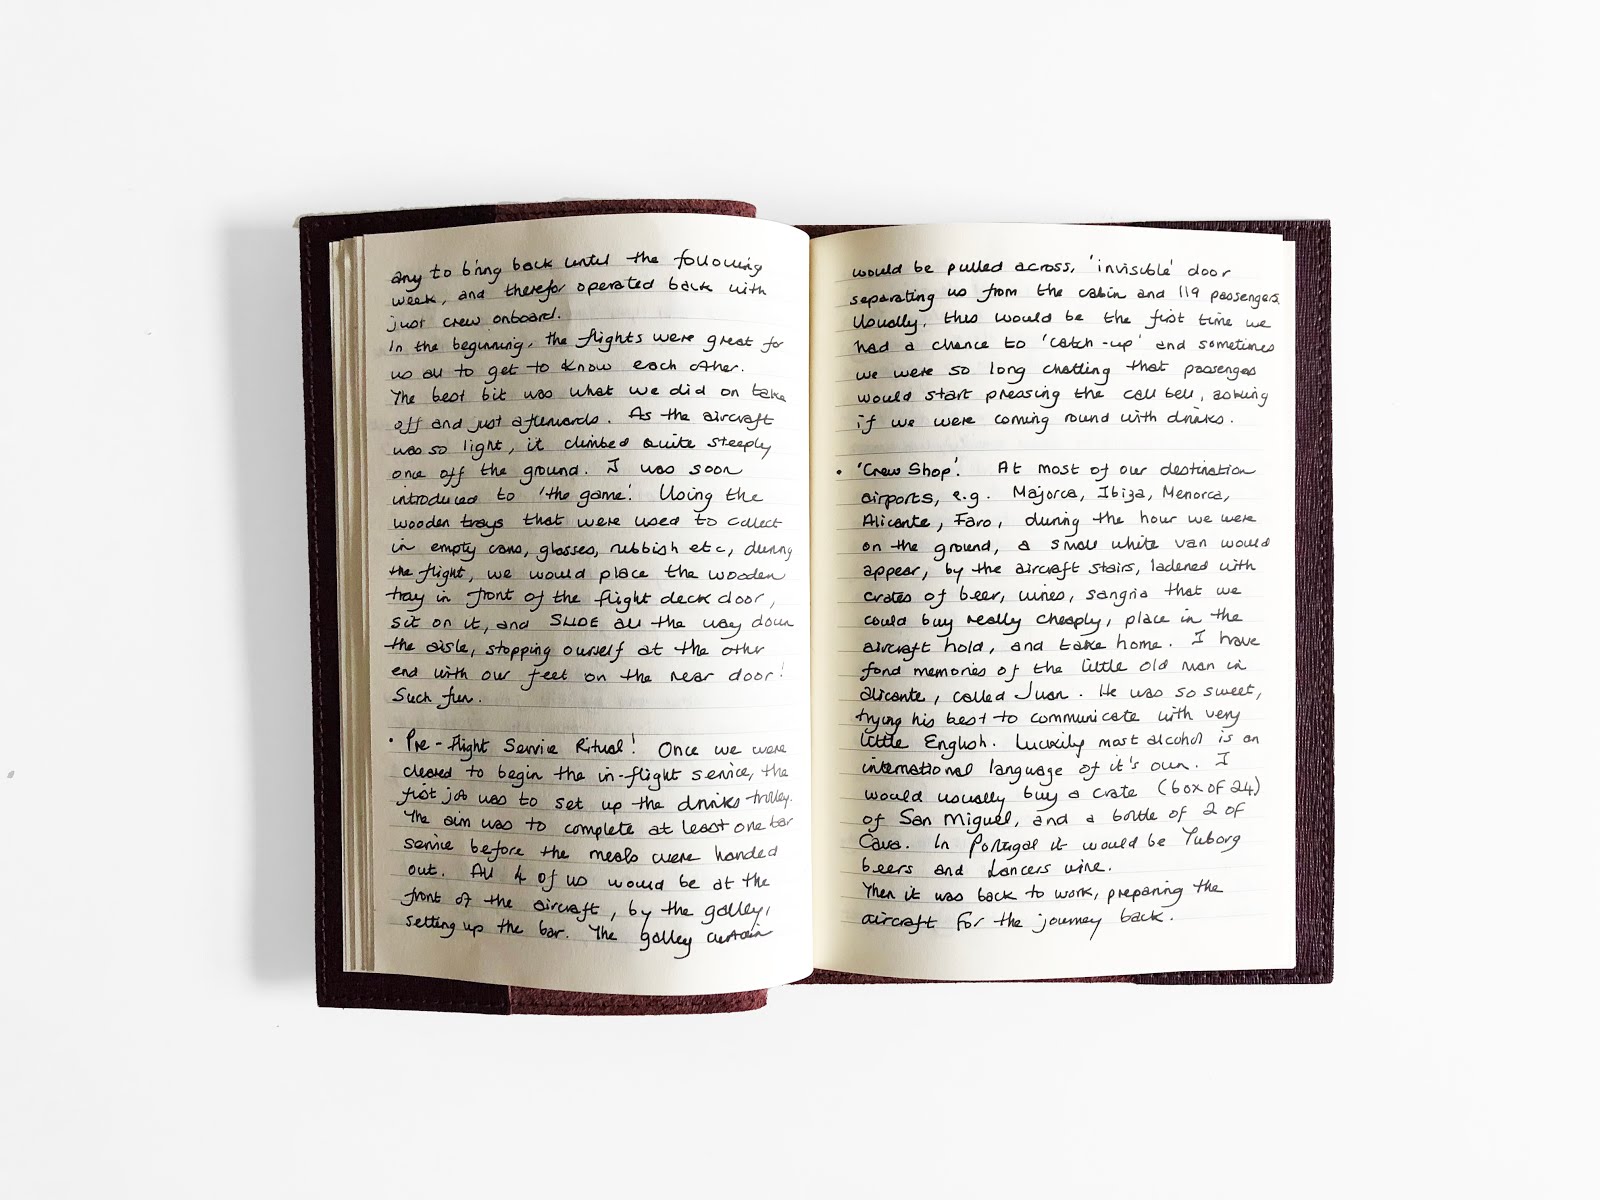 any to bring back until the following
week, and therefor operated back with
just crew onboard.
In the beginning, the flights were great for
us all to get to know each other.
The best bit was what we did on take
off and just afterwards. As the aircraft
was so light, it climbed quite steeply
once off the ground. I was soon
introduced to 'the game'. Using the
wooden trays that were used to collect
in empty cans, glasses, rubbish etc, during
the flight, we would place the wooden
tray in front of the flight deck door,
sit on it, and SLIDE all the way down
the aisle, stopping ourself at the other
end with our feet on the rear door!
Such fun.
• Pre-flight Service Ritual! Once we were
cleared to begin the in-flight service, the
first job was to set up the drinks trolley.
The aim was to complete at least one bar
service before the meals were handed
out. All 4 of us would be at the
front of the aircraft, by the galley,
setting up the bar. The galley curtain
would be pulled across, 'invisible' door
separating us from the cabin and 119 passengers.
Usually, this would be the first time we
had a chance to 'catch-up' and sometimes
we were so long chatting that passengers
would start pressing the call bell, asking
if we were coming round with drinks.
• 'Crew Shop'. At most of our destination
airports, e.g. Majorca, Ibiza, Menorca,
Alicante, Faro, during the hour we were
on the ground, a small white van would
appear, by the aircraft stairs, ladened with
crates of beer, wines, sangria that we
could buy really cheaply, place in the
aircraft hold, and take home. I have
fond memories of the little old man in
alicante, called Juan. He was so sweet,
trying his best to communicate with very
little English. Luckily most alcohol is an
international language of it's own. I
would usually buy a crate (box of 24)
of San Miguel, and a bottle of 2 of
Cava. In Portugal it would be Tuborg
beers and Lancers wine.
Then it was back to work, preparing the
aircraft for the journey back.